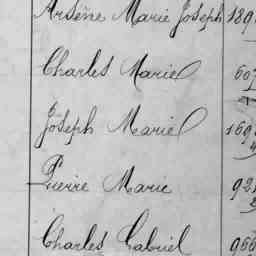 Arsène Marie Joseph 189
Charles Marie 607
Joseph Marie 169
Pierre Marie 92
Charles Gabriel 966